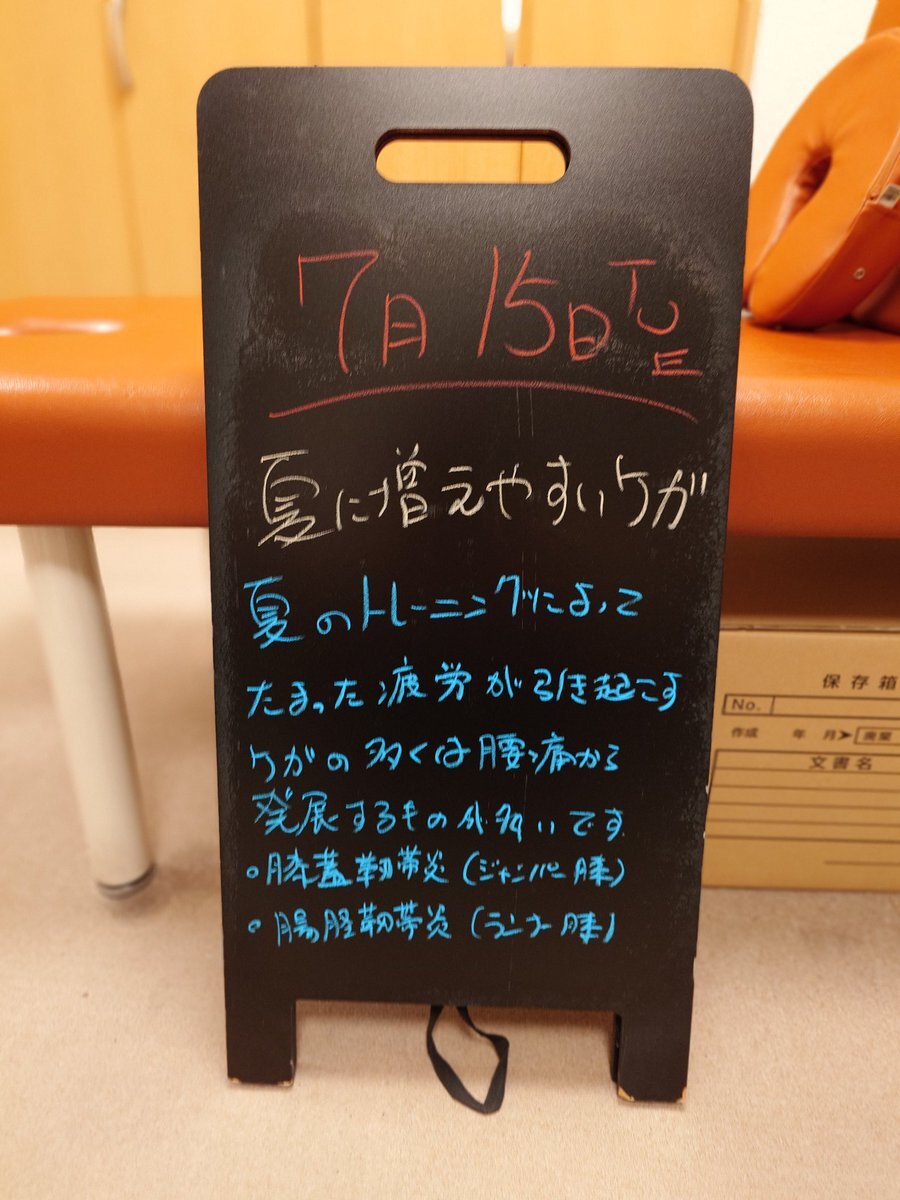 7月15日TUE
夏に増えやすいケガ
夏のトレーニングによって
たまった疲労が引き起こす
ケガの多くは腰痛から
発展するものが多いです
・膝蓋靭帯炎(ジャンパー膝)
・腸脛靭帯炎(ランナー膝)
保存箱
No.
作成 年 月 廃棄
文書名